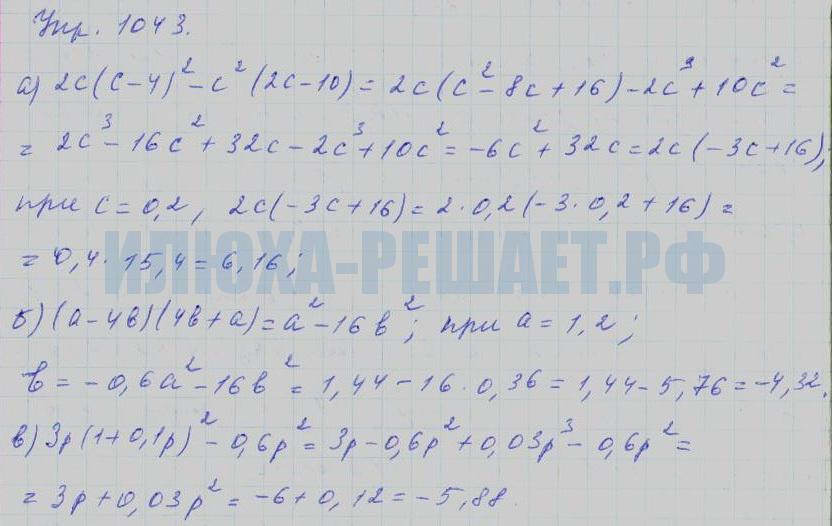 Упр. 1043.
а) 2c(c-4)² - c²(2c-10) = 2c(c² - 8c + 16) - 2c³ + 10c² =
= 2c³ - 16c² + 32c - 2c³ + 10c² = -6c² + 32c = 2c(-3c+16),
при c = 0,2, 2c(-3c+16) = 2·0,2(-3·0,2+16) =
= 0,4·15,4 = 6,16;
ИЛЮХА-РЕШАЕТ.РФ
б) (a-4b)(4b+a) = a² - 16b²; при a = 1,2;
b = -0,6a² - 16b² = 1,44 - 16·0,36 = 1,44 - 5,76 = -4,32.
в) 3p(1+0,1p)² - 0,6p² = 3p - 0,6p² + 0,03p³ - 0,6p² =
= 3p + 0,03p² = -6 + 0,12 = -5,88.